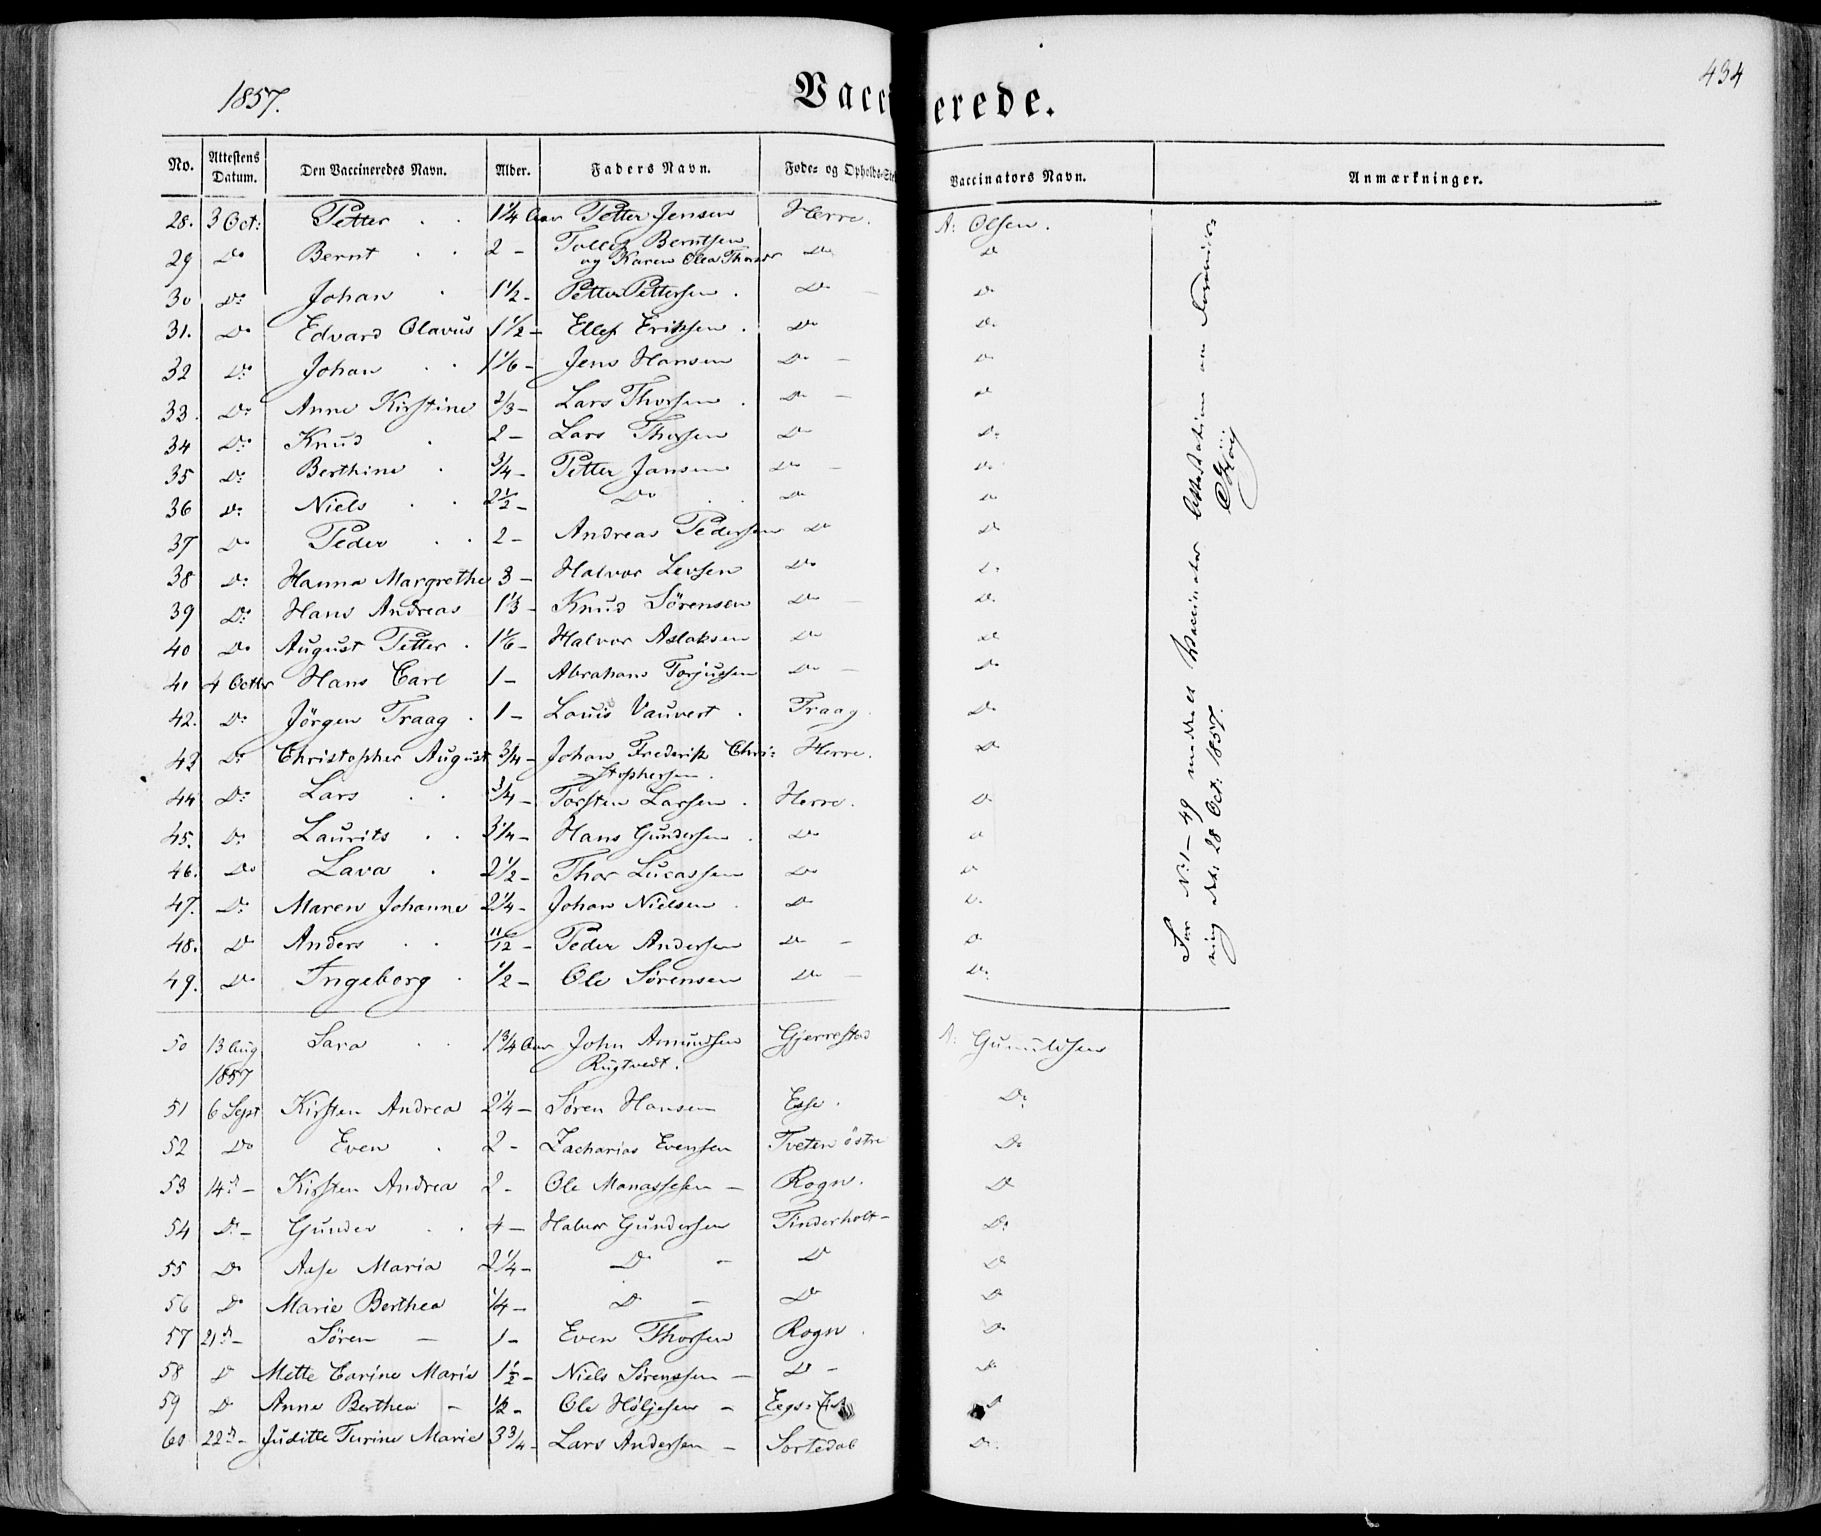 434
1857.
Vaccinerede.
No. Attestens Datum. Den Vaccineredes Navn. Alder. Faders Navn. Føde- og Opholds-Ste Vaccinators Navn. Anmærkninger.
28. 3 Oct: Petter 1 1/4 Aar Petter Jensen Herre. A: Olsen.
29 Do Bernt 2 - Tollef Berntsen og Karen Olea Thorsdr Do Do
30 Do Johan 1 1/2 - Petter Pettersen. Do Do
31. Do Edvard Olavus 1 1/2 - Ellef Eriksen. Do Do
32 Do Johan 1 1/6 - Jens Hansen Do - Do
33. Do Anne Kirstine 2/3 - Lars Thorsen. Do - Do
34 Do Knud 2 - Lars Thorsen Do Do
35 Do Berthine 3/4 - Petter Jansen Do - Do
36 Do Niels 2 1/2 - Do Do Do
37 Do Peder 2 - Andreas Pedersen Do Do
38 Do Hanna Margrethe 3 - Halvor Levsen Do Do
39 Do Hans Andreas 1 1/3 - Knud Sørensen Do - Do
40 Do August Petter. 1 1/6 - Halvor Aslaksen Do Do
41 4 Octbr Hans Carl 1 - Abraham Torjusen Do - Do
42. Do Jörgen Traag. 1 - Louis Vauvert. Traag. Do
43 Do Christopher August 3/4 - Johan Frederik Chri= stophersen. Herre. Do
44 Do Lars 3/4 - Torsten Larsen. Herre. Do
45. Do Laurits 3 1/4 - Hans Gundersen. Do Do
46. Do Lava 2 1/2 - Thor Lucassen Do Do
47. Do Maren Johanne 2 1/4 - Johan Nielsen Do Do
48. Do Anders 11/12 - Peder Andersen Do - Do
49. Do Ingeborg 1/2 - Ole Sørensen Do - Do
For No 1 - 49 meddelt Vaccinator Attestation om
ning dd: 28 Oct: 1857.
50 13 Aug 1857 Sara 1 3/4 Aar John Amundsen Rugtvedt. Gjerrestad A: Gunuldsen
51 6 Sept Kirsten Andrea 2 1/4 - Søren Hansen Do
52 Do Even 2 - Zacharias Evensen Tveten östre Do
53 14de - Kirsten Andrea 2 - Ole Manassesen - Rogn. Do
54 Do - Gunder 4 - Halvor Gundersen Tinderholt - Do
55 Do Aase Maria 2 1/4 - Do - Do Do
56 Do Marie Berthea 1/4 - Do - Do Do
57 21de - Sören - 1 - Even Thorsen Rogn. Do
58 Do Mette Carine Marie 1 1/2 - Niels Sørensen - Do - Do
59 Do Anne Berthea - 1/2 - Ole Höljesen - Do
60 22de - Juditte Turine Marie 3 3/4 - Lars Andersen - Sortedal Do